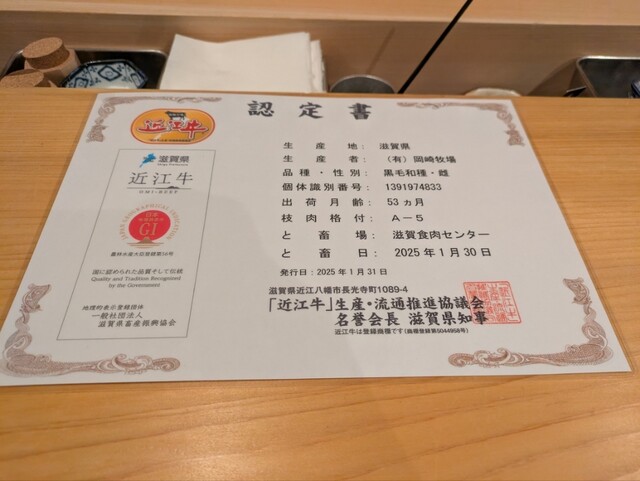 認定書
近江牛
滋賀県
Shiga Prefecture
近江牛
OMI-BEEF
JAPAN GEOGRAPHICAL INDICATION
GI
農林水産大臣登録第56号
国に認められた品質そして伝統
Quality and Tradition Recognized
by the Government
地理的表示登録団体
一般社団法人
滋賀県畜産振興協会
生産地： 滋賀県
生産者： （有）岡崎牧場
品種・性別： 黒毛和種・雌
個体識別番号： 1391974833
出荷月齢： 53ヵ月
枝肉格付： A－5
と畜場： 滋賀食肉センター
と畜日： 2025年1月30日
発行日：2025年1月31日
滋賀県近江八幡市長光寺町1089-4
「近江牛」生産・流通推進協議会
名誉会長 滋賀県知事
近江牛は登録商標です（商標登録第5044958号）